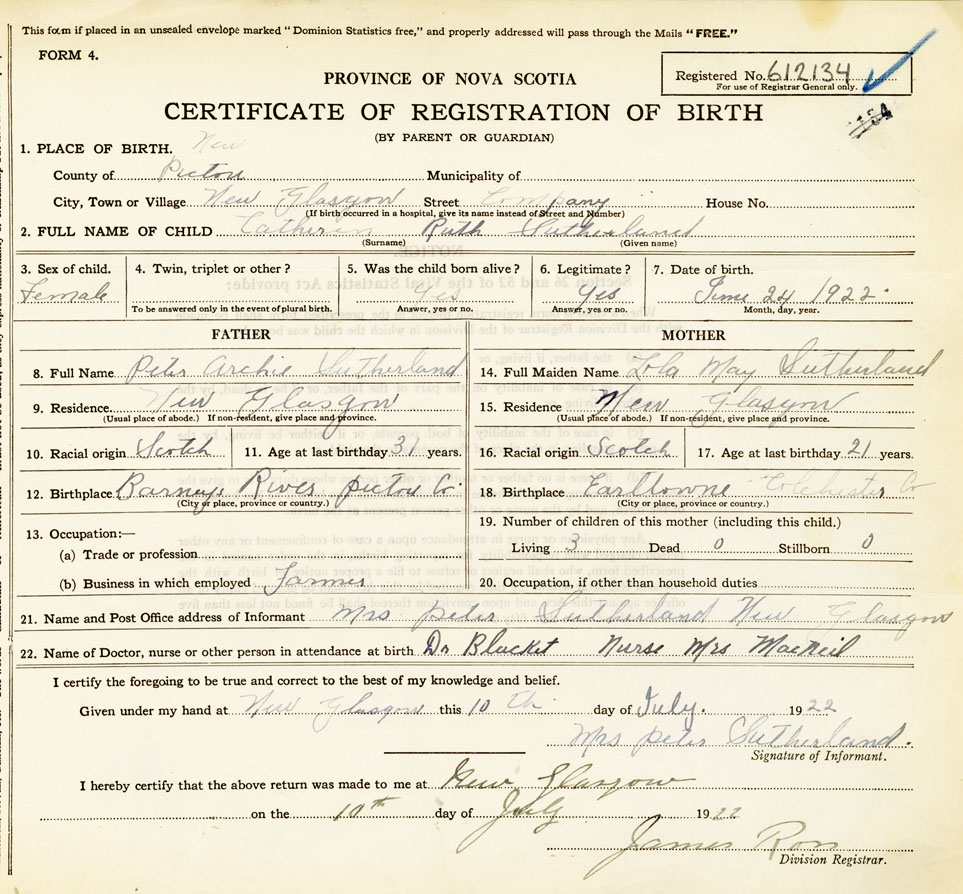 This form if placed in an unsealed envelope marked "Dominion Statistics free," and properly addressed will pass through the Mails "FREE."
FORM 4.
PROVINCE OF NOVA SCOTIA
Registered No. 612134
For use of Registrar General only.
CERTIFICATE OF REGISTRATION OF BIRTH
(BY PARENT OR GUARDIAN)
1. PLACE OF BIRTH. New
County of Pictou Municipality of
City, Town or Village New Glasgow Street Company House No.
(If birth occurred in a hospital, give its name instead of Street and Number)
2. FULL NAME OF CHILD Catherin Ruth Sutherland
(Surname) (Given name)
3. Sex of child. 4. Twin, triplet or other? 5. Was the child born alive? 6. Legitimate? 7. Date of birth.
Female Yes Yes June 24 1922
To be answered only in the event of plural birth. Answer, yes or no. Answer, yes or no. Month, day, year.
FATHER
8. Full Name Peter Archie Sutherland
9. Residence New Glasgow
(Usual place of abode.) If non-resident, give place and province.
10. Racial origin Scotch 11. Age at last birthday 31 years.
12. Birthplace Barneys River Pictou Co.
(City or place, province or country.)
13. Occupation:—
(a) Trade or profession
(b) Business in which employed Farmer
MOTHER
14. Full Maiden Name Lola May Sutherland
15. Residence New Glasgow
(Usual place of abode.) If non-resident, give place and province.
16. Racial origin Scotch 17. Age at last birthday 21 years.
18. Birthplace Earltowne Colchester Co
(City or place, province or country.)
19. Number of children of this mother (including this child.)
Living 3 Dead 0 Stillborn 0
20. Occupation, if other than household duties
21. Name and Post Office address of Informant Mrs peter Sutherland New Glasgow
22. Name of Doctor, nurse or other person in attendance at birth Dr Blacket Nurse Mrs MacNeil
I certify the foregoing to be true and correct to the best of my knowledge and belief.
Given under my hand at New Glasgow this 10 th day of July. 1922
Mrs peter Sutherland.
Signature of Informant.
I hereby certify that the above return was made to me at New Glasgow
on the 10th day of July 1922
James Ross
Division Registrar.